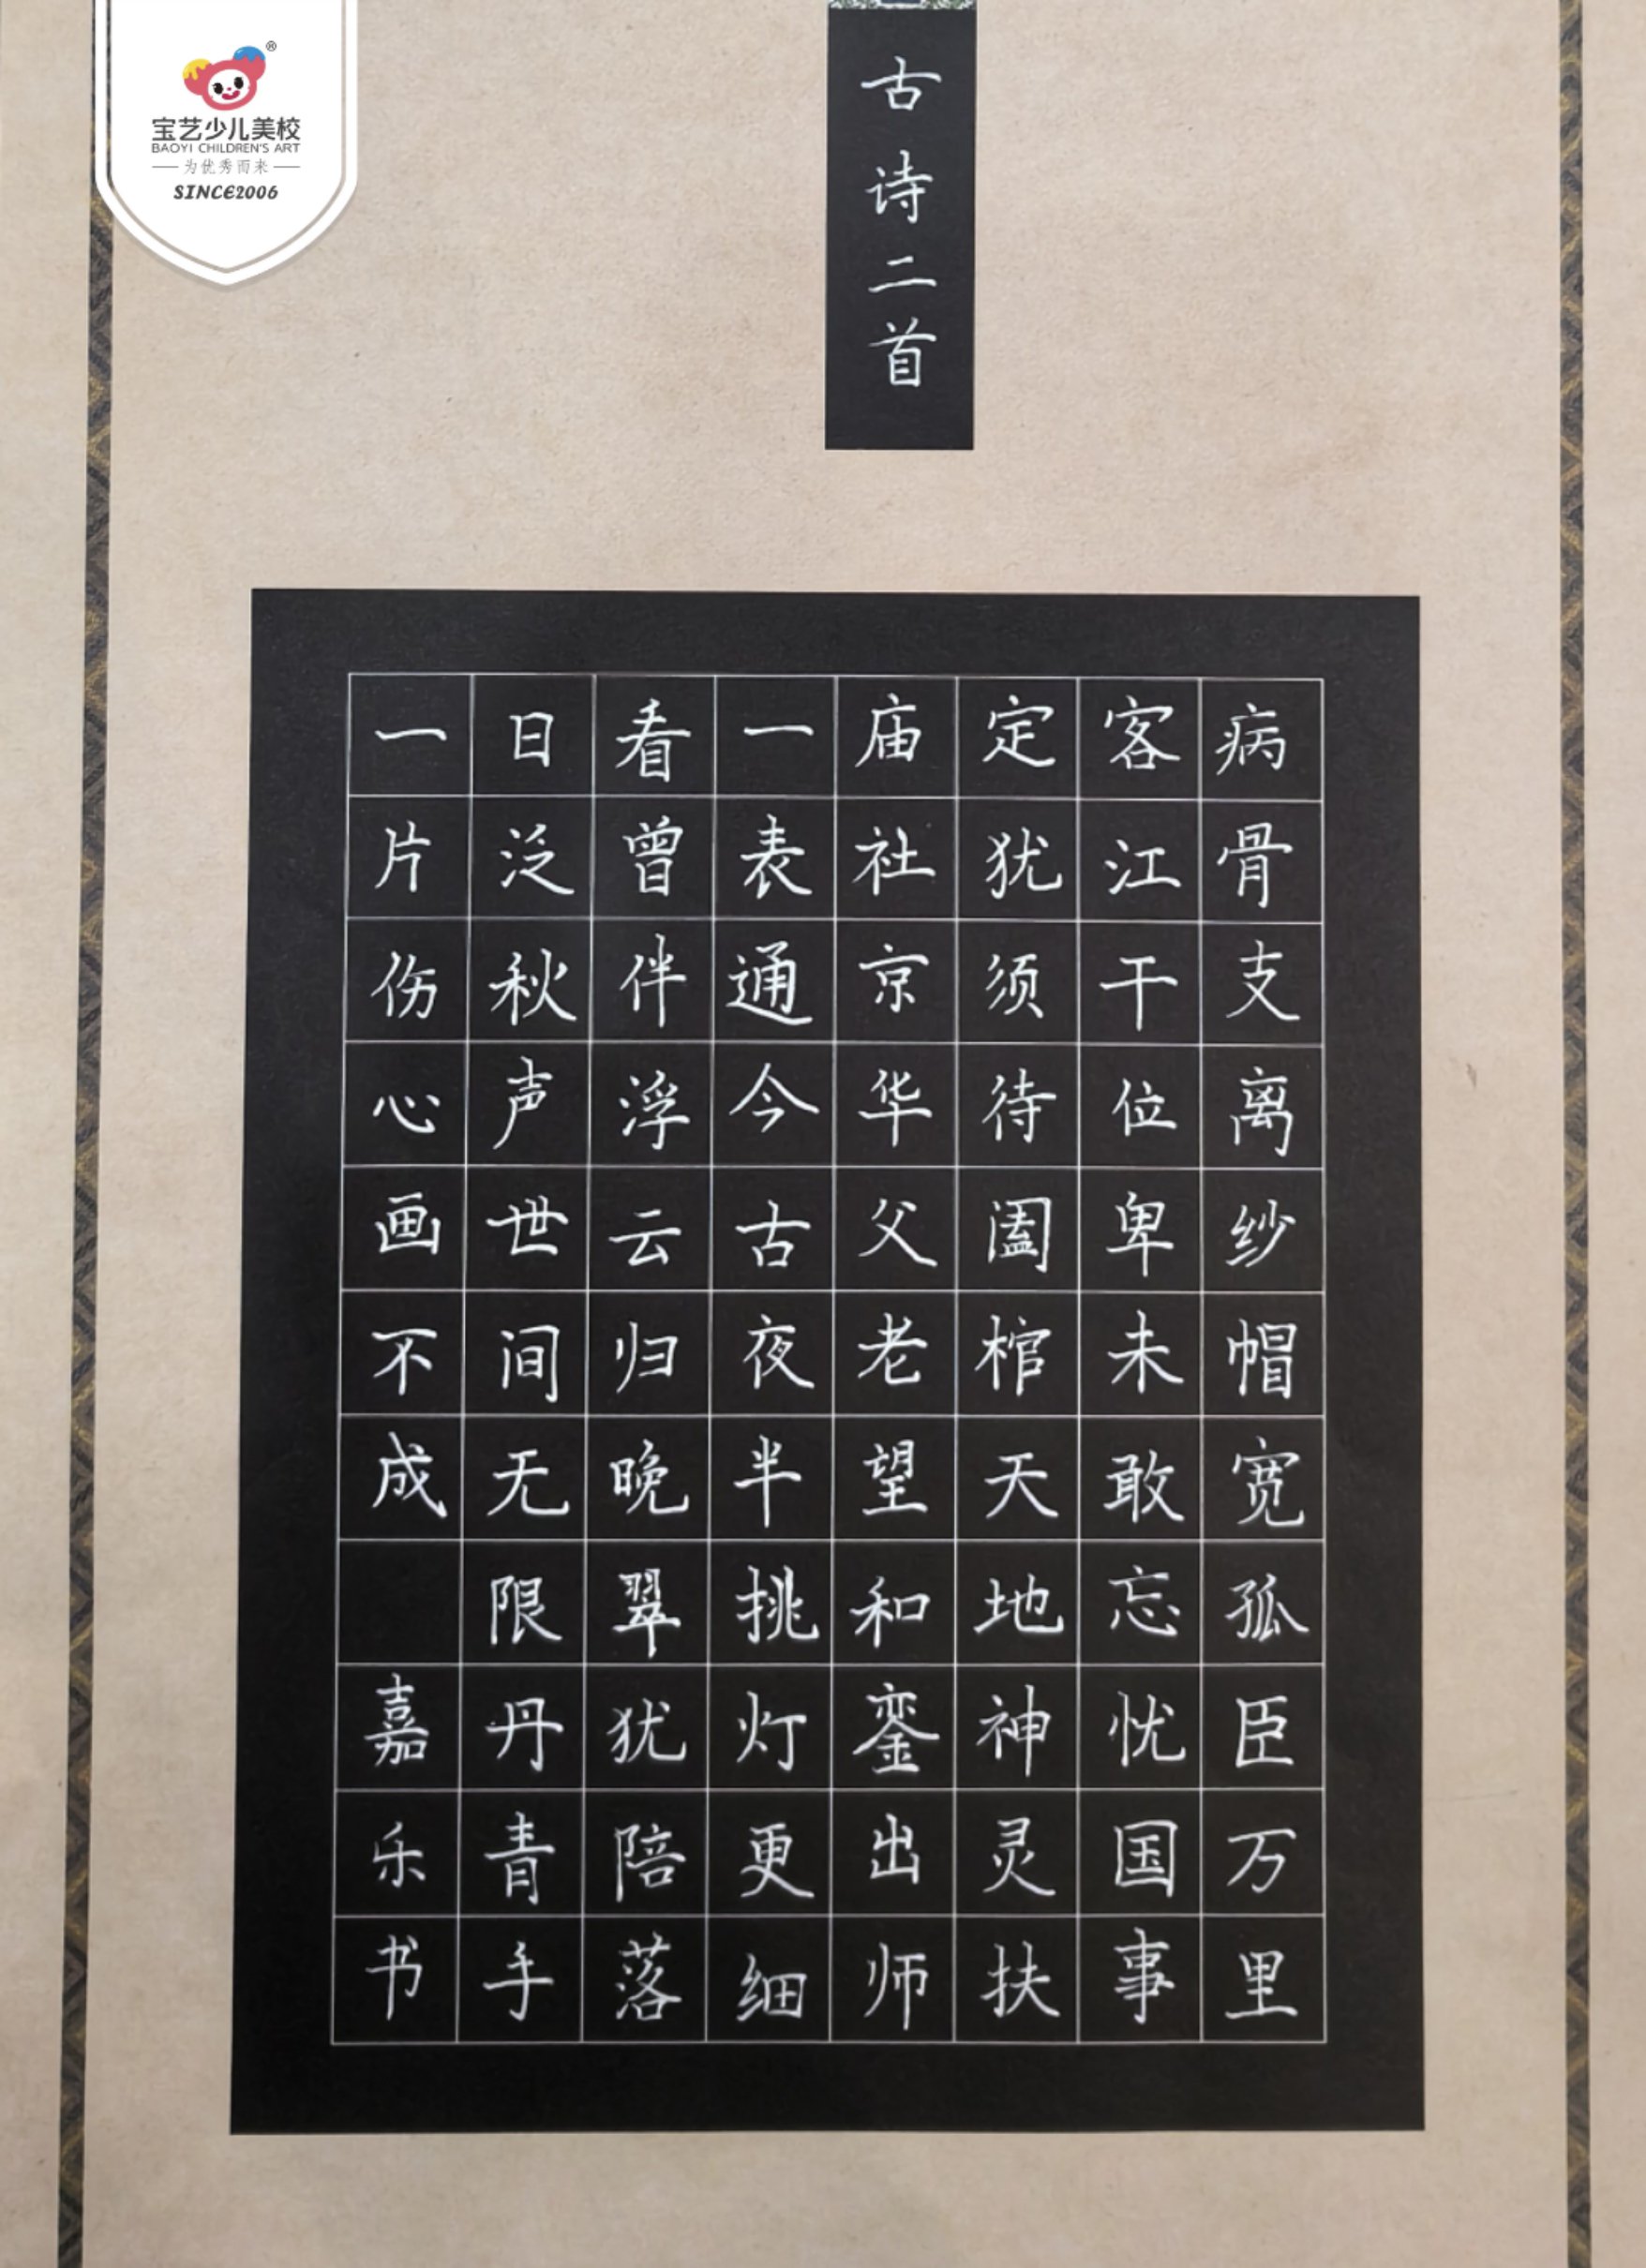 宝艺少儿美校
BAOYI CHILDREN'S ART
为优秀而来
SINCE2006
古诗二首
病骨支离纱帽宽孤臣万里
客江干位卑未敢忘忧国事
定犹须待阖棺天地神灵扶
庙社京华父老望和銮出师
一表通今古夜半挑灯更细
看曾伴浮云归晚翠犹陪落
日泛秋声世间无限丹青手
一片伤心画不成 嘉乐书